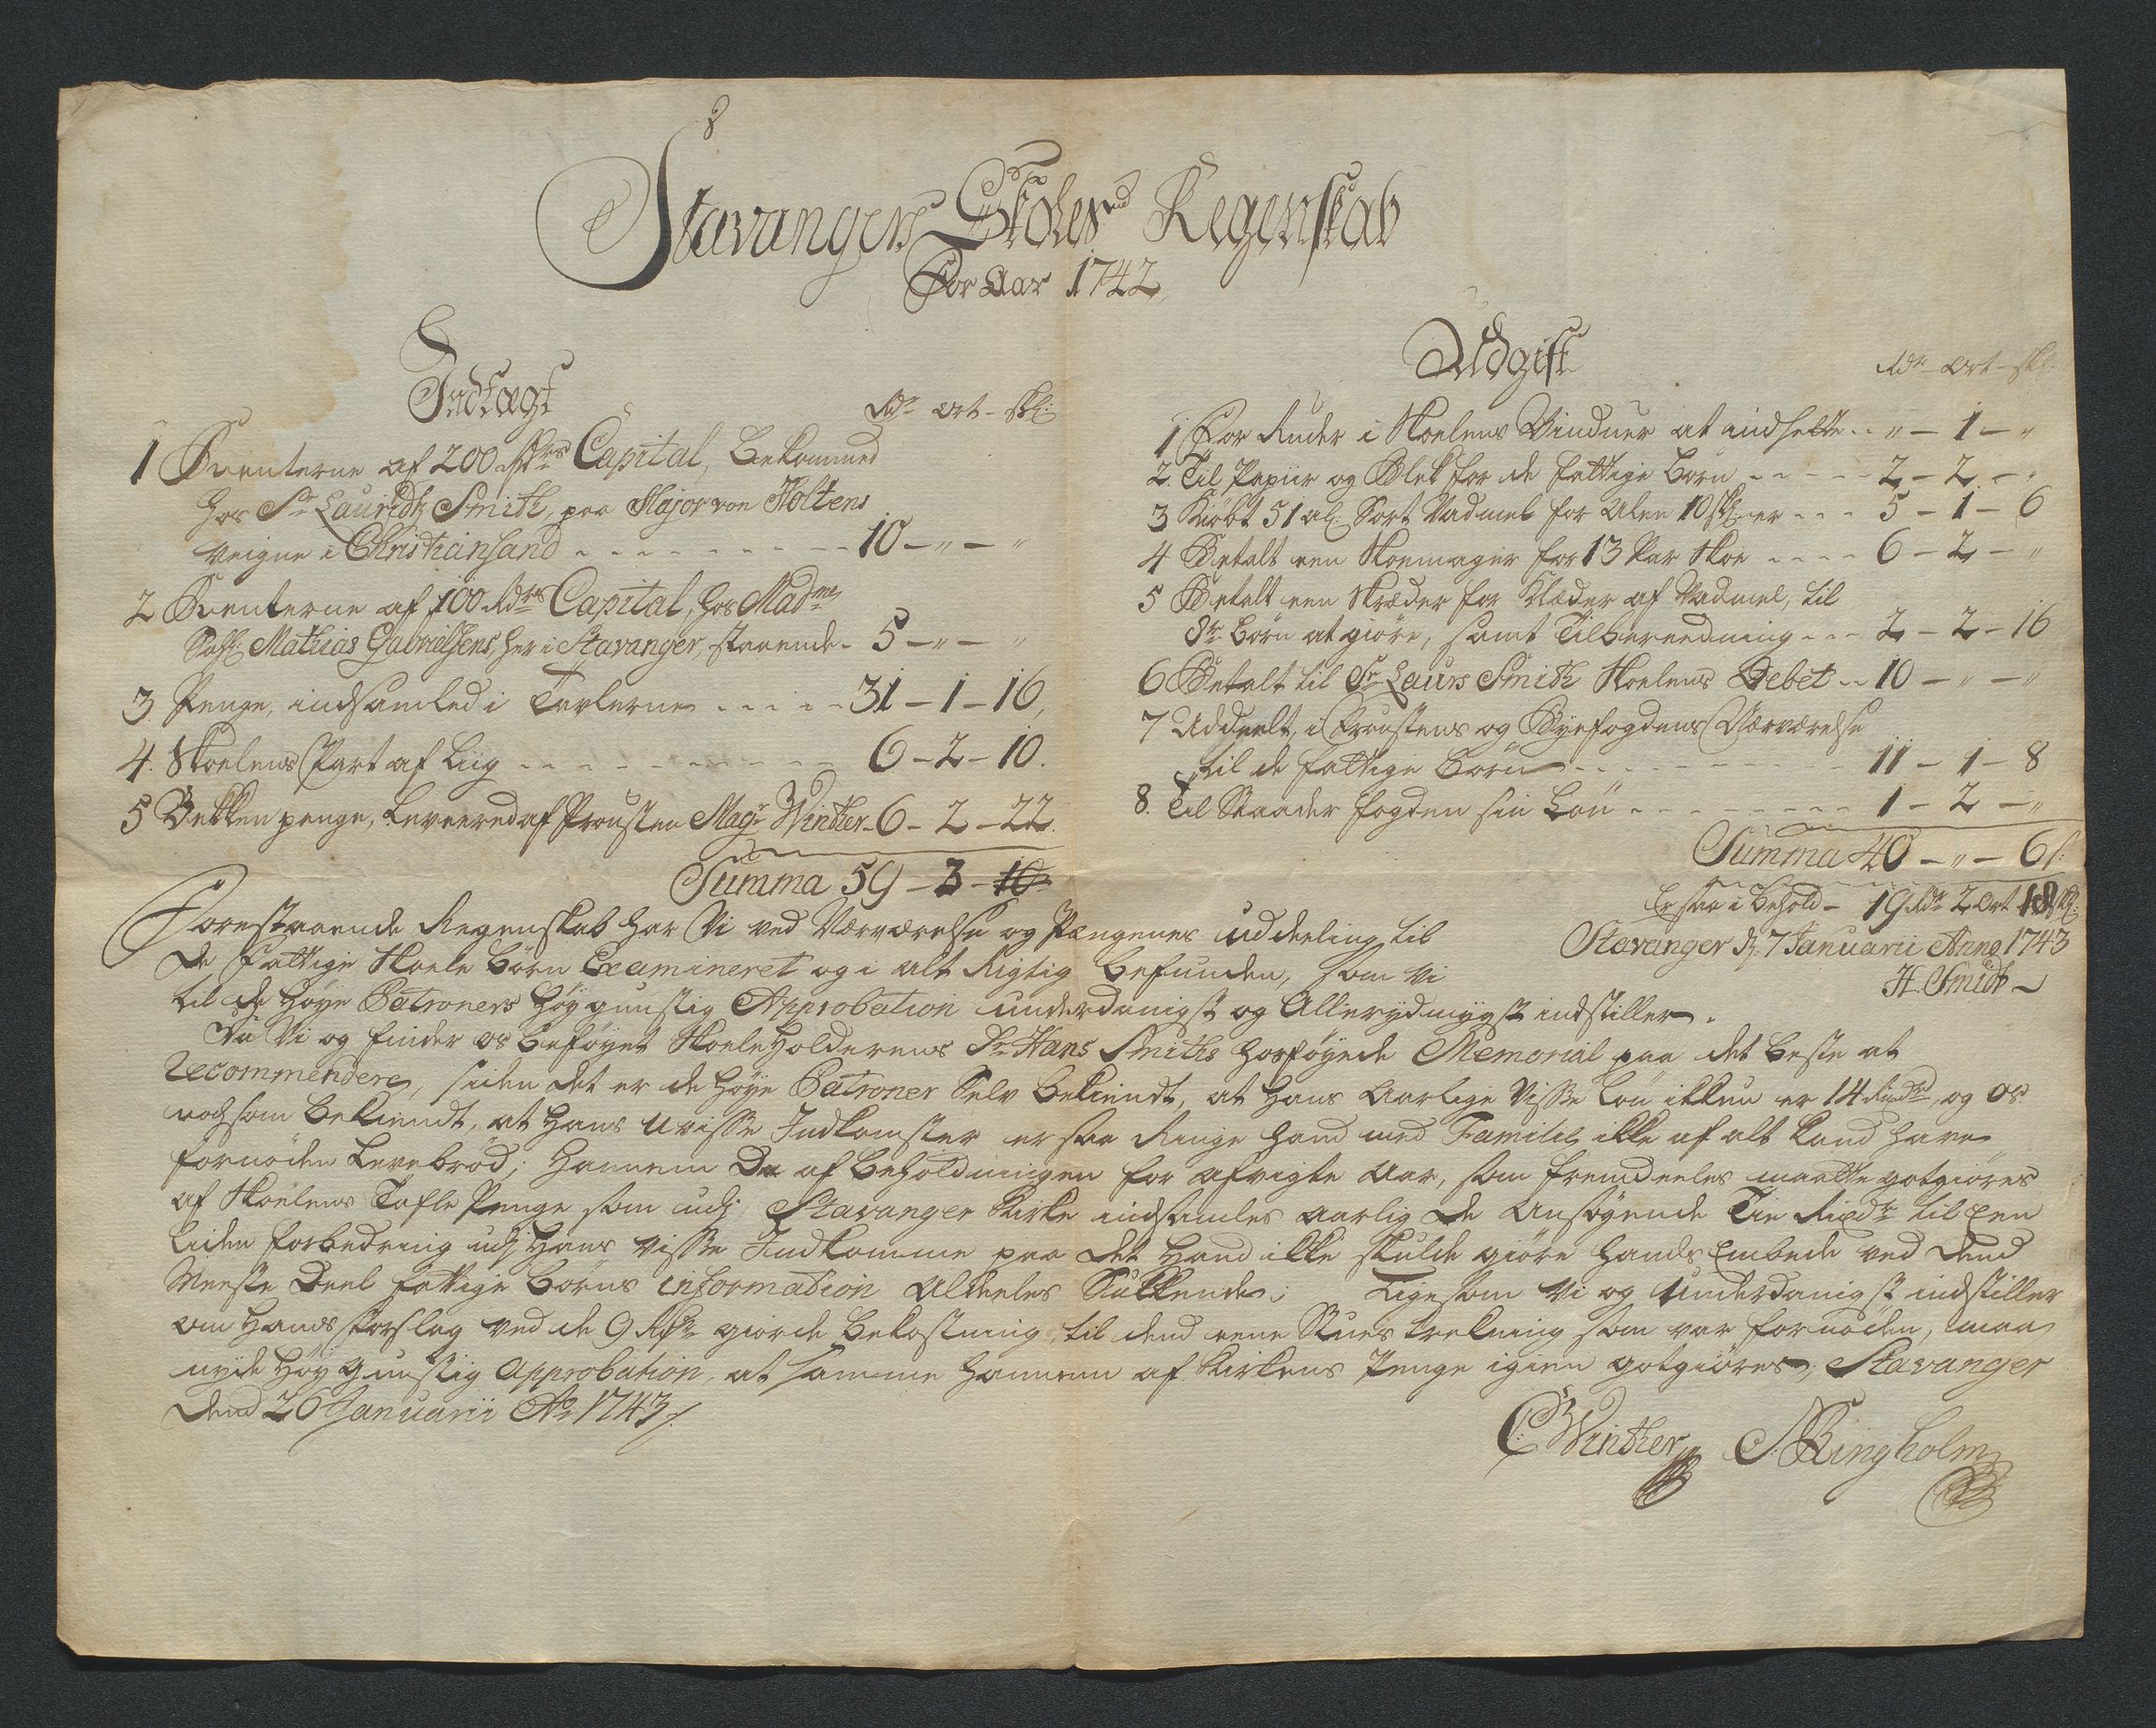 Stavangers Skoles Regenskab
For Aar 1742
Indtægt
Rdr Ort - skl:
1 Renterne af 200 Rdrs Capital, bekommed
hos Sr Lauridtz Smith, paa Major von Holtens
veigne i Christiansand - - - - - 10 - " - "
2 Renterne af 100 Rdrs Capital, hos Madme
Sahl: Mathias Gabrielsens, her i Stavanger, staaende - 5 - " - "
3 Penge, indsamled i Tavlerne - - - - 31 - 1 - 16,
4. Skoelens Part af Liig - - - - - 6 - 2 - 10.
5 Bekken penge, Leveered af Prousten Magr Winther - 6 - 2 - 22.
Summa 59 - 3 - 10
Udgift
Rdr - Ort - skl:
1 For Ruder i Skoelens Vinduer at indsette - - " - 1 - "
2. Til Papiir og Blek for de fattige Børn - - - - 2 - 2 - "
3 Kiøbt 51 al: Sort Vadmel for Alen 10 skl: er - - - 5 - 1 - 6
4 Betalt een Skoemager for 13 Par Skoe - - - - 6 - 2 - "
5 Betalt een Skræder for Klæder af Vadmel, til
dr Børn at giøre, samt Tilbereedning - - - 2 - 2 - 16
6 Betalt til Sr Laurs Smith Skoelens Debet - - 10 - " - "
7 Uddeelt, i Proustens og Byefogdens Nærværelse
til de fattige Børn - - - - - 11 - 1 - 8
8. Til Staader fogden sin Løn - - - - - 1 - 2 - "
Summa 40 - " - 6 s:
Er saa i behold - 19 Rdr 2 Ort 18 skl:
Stavanger d: 7 Januarii Anno 1743
H. Smidt
Forestaaende Regenskab har Vi ved Nærværelse og Pengenes uddeeling til
de fattige Skoele Børn Examineret og i alt Rigtig befunden, som vi
til de Høye Patroners Høygunstig Approbation underdanigst og Allerydmygst indstiller.
Saa Vi og finder os beføyet SkoeleHolderens Sr Hans Smiths hosføyede Memorial paa det beste at
recommendere, siden det er de Høye Patroner Selv bekiendt, at hans Aarlige Visse Løn ikkun er 14 Rixdr, og os
noksom bekiendt, at hans uvisse Indkomster er saa Ringe hand med Familie ikke af alt kand have
fornøden Levebrød; Hannem Da af beholdningen for afvigte Aar, som fremdeeles maatte gotgiøres
af Skoelens Tafle Penge som udj Stavanger Kirke indsamles aarlig de Ansøgende Tie Rixdr til Een
liden forbedring udj Hans visse Indkomme paa det Hand ikke skulde giøre hands Embede ved dend
Meeste Deel fattige børns information Aldeeles Sukkende; Ligesom Vi og Underdanigst indstiller
om Hands forslag ved de 9 Rdr giorde bekostning, til dend eene Stues trekning som var fornøden, maa
nyde Høy gunstig approbation, at samme hannem af Kirkens Penge igien gotgiøres; Stavanger
Dend 26 Januarii Ao 1743 /.
C: Winther S: Ringholm